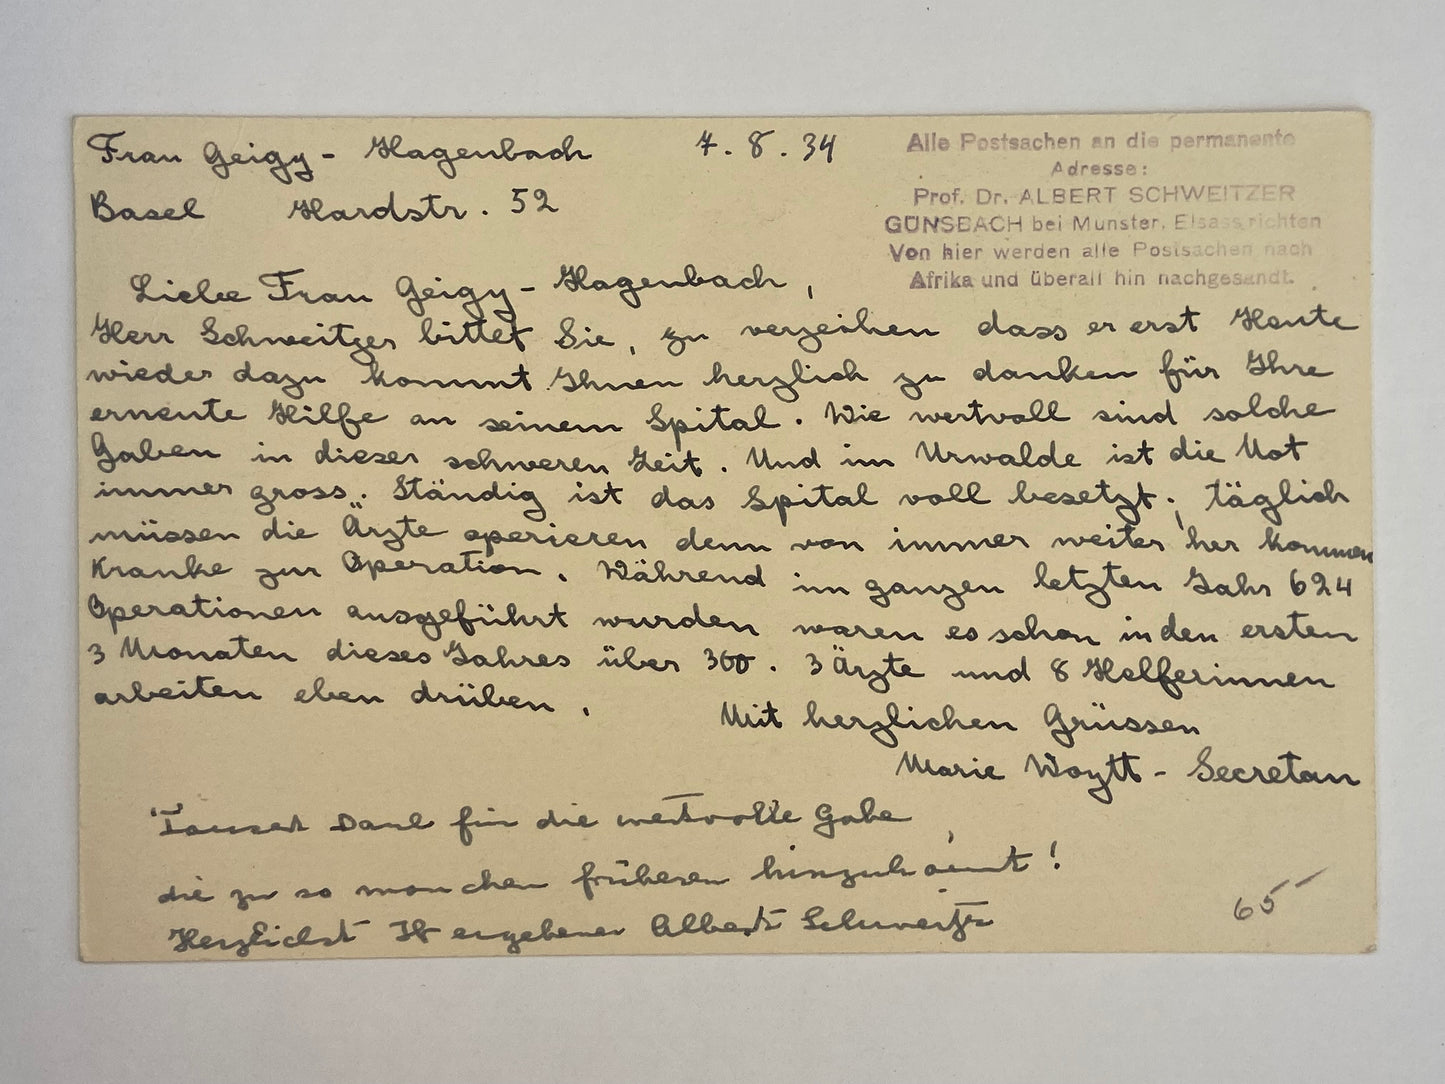 Frau Geigy - Hagenbach 7. 8. 34
Basel Hardstr. 52
Alle Postsachen an die permanente
Adresse:
Prof. Dr. ALBERT SCHWEITZER
GÜNSBACH bei Munster, Elsass richten
Von hier werden alle Postsachen nach
Afrika und überall hin nachgesandt.
Liebe Frau Geigy - Hagenbach,
Herr Schweitzer bittet Sie, zu verzeihen dass er erst Heute
wieder dazu kommt Ihnen herzlich zu danken für Ihre
erneute Hilfe an seinem Spital. Wie wertvoll sind solche
Gaben in dieser schweren Zeit. Und im Urwalde ist die Not
immer gross. Ständig ist das Spital voll besetzt; täglich
müssen die Ärzte operieren denn von immer weiter her kommen
Kranke zur Operation. Während im ganzen letzten Jahr 624
Operationen ausgeführt wurden waren es schon in den ersten
3 Monaten dieses Jahres über 300. 3 Ärzte und 8 Helferinnen
arbeiten eben drüben.
Mit herzlichen Grüssen
Marie Woytt - Secretan
Tausend Dank für die wertvolle Gabe,
die zu so manchen früheren hinzukommt!
Herzlichst Ihr ergebener Albert Schweitzer
65